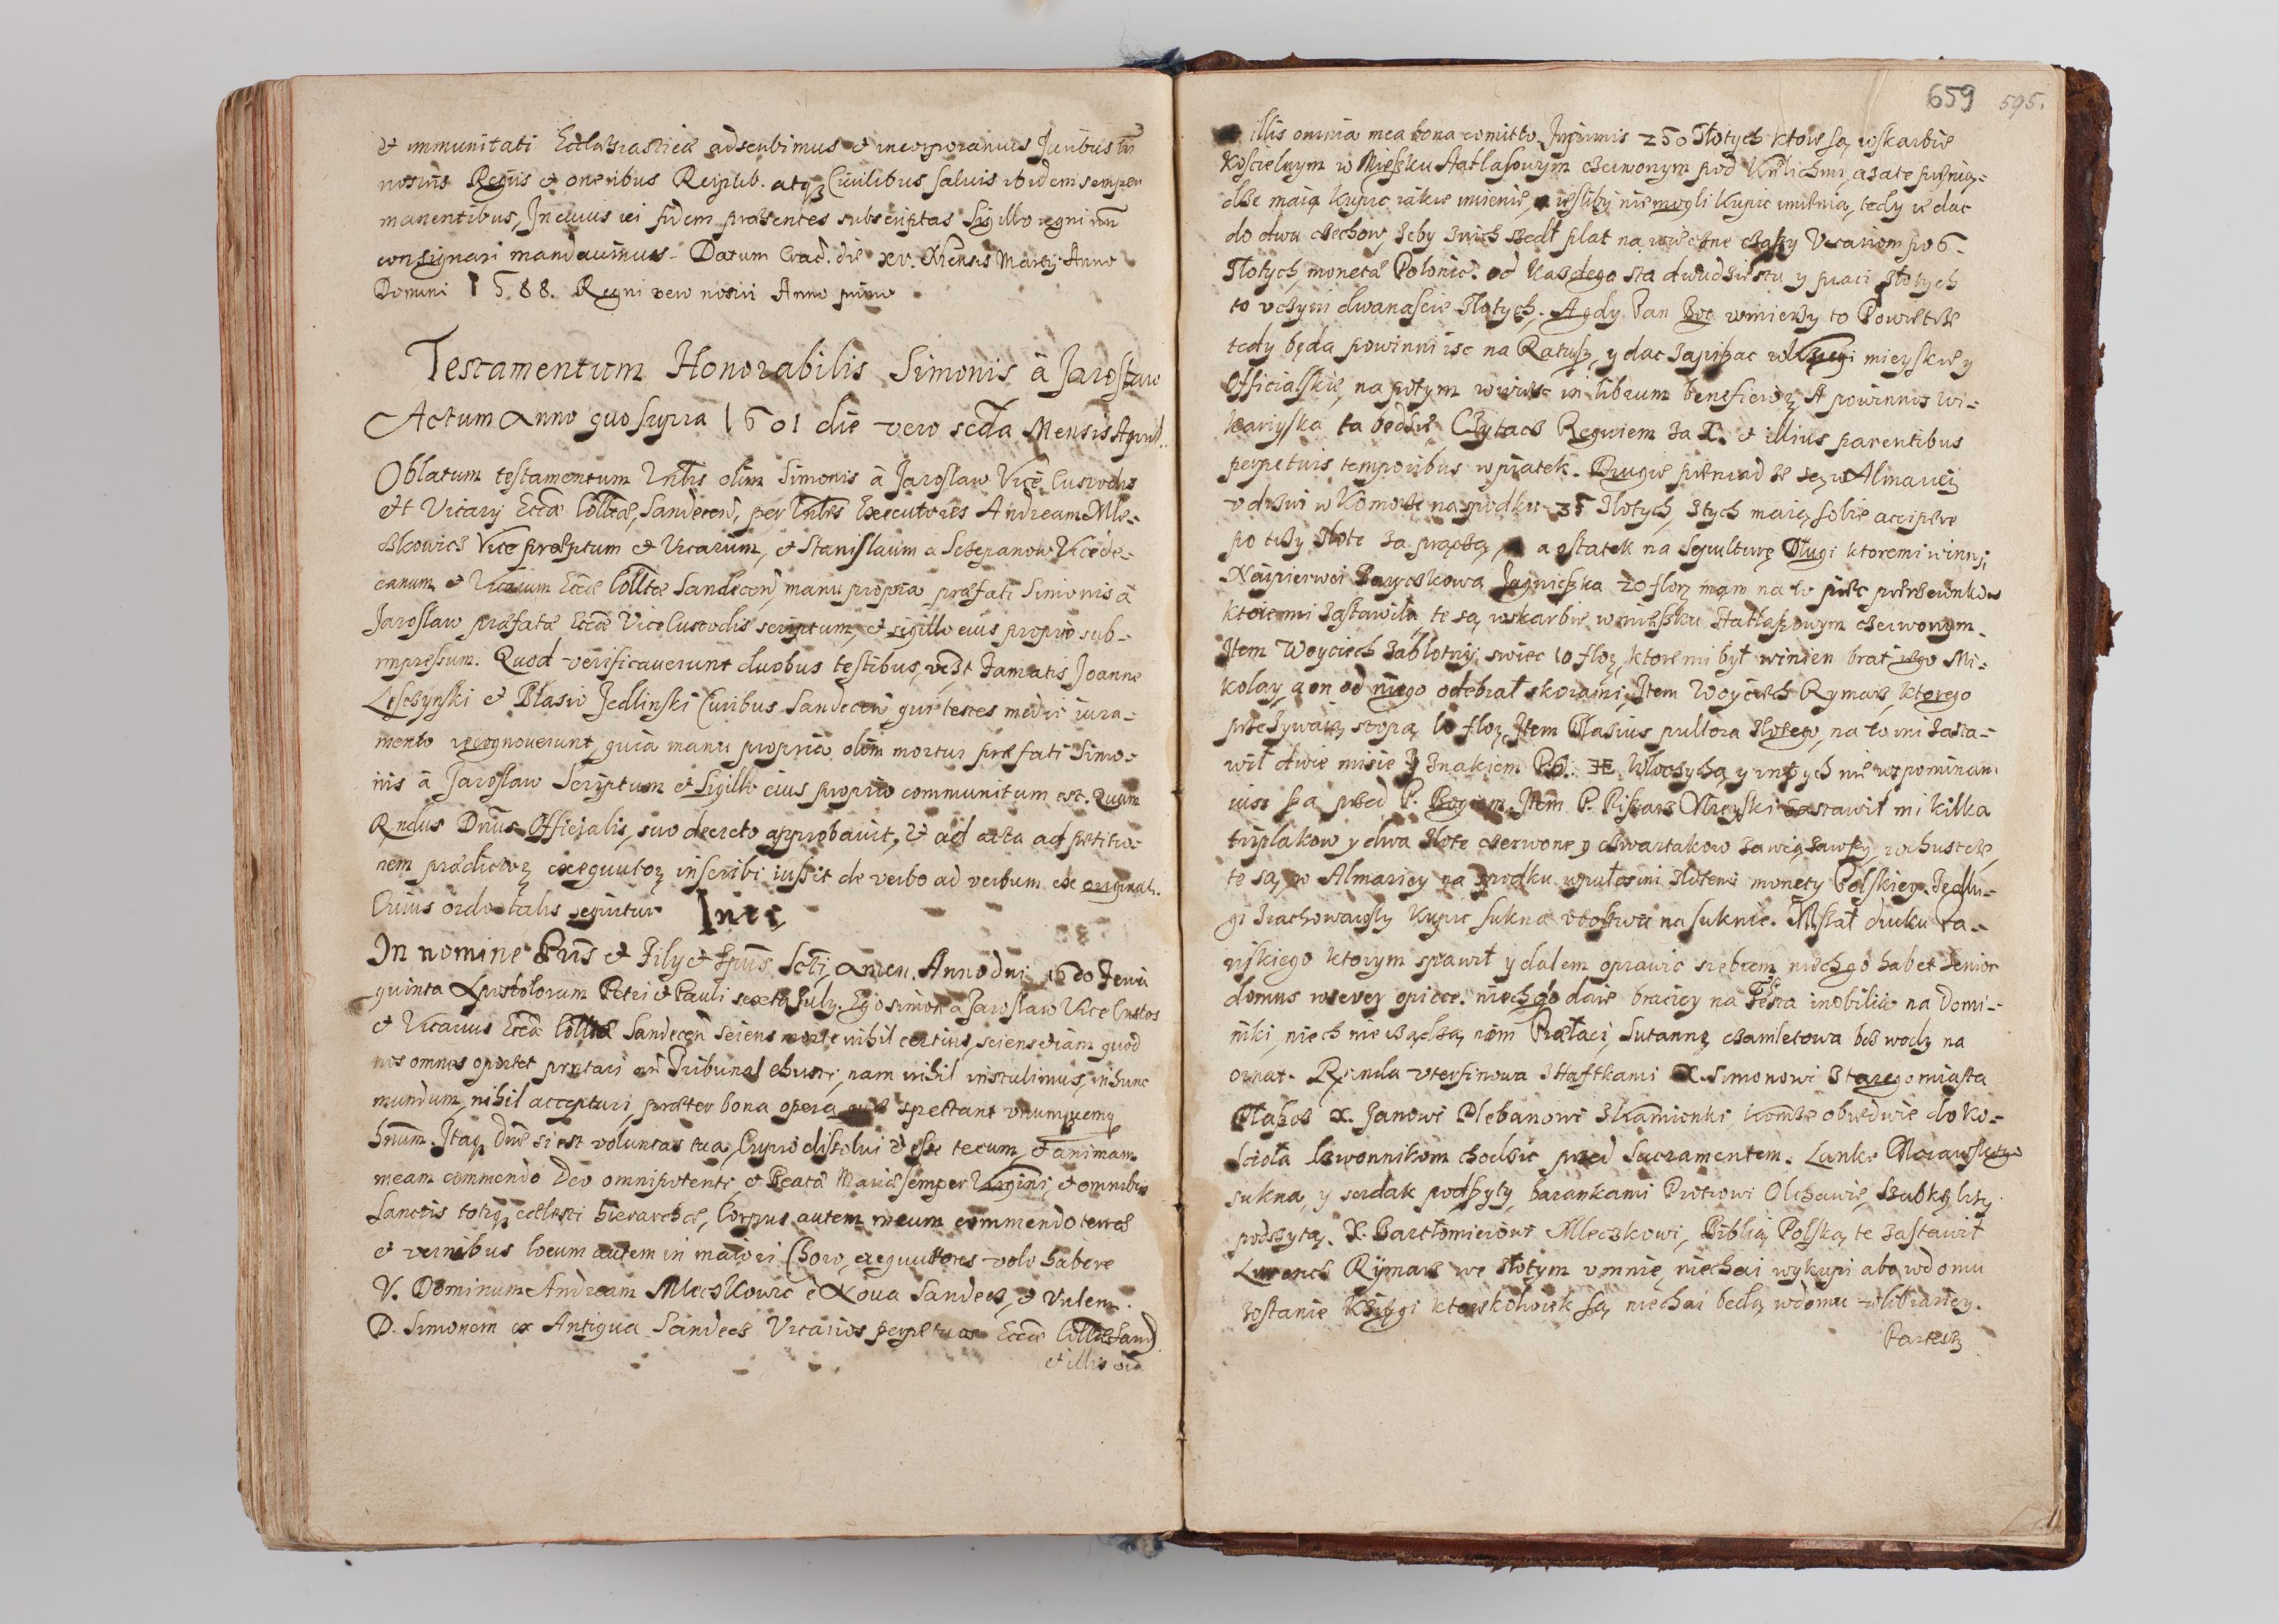 et immunitati Ecclesiasticae adscribimus et incorporamus Juribus tn
nostris Regiis et oneribus Reipub. atq Civilibus salvis ibidem semper
manentibus, In cuius rei fidem praesentes subscriptas Sigillo regni nri
consignari mandavimus. Datum Crac. die xv. Mensis Martij Anno
Domini 1588. Regni vero nostri Anno primo
Testamentum Honorabilis Simonis à Jaroslaw
Actum Anno quo supra 1601 die vero scda Mensis April.
Oblatum testamentum olim Simonis à Jaroslaw Vice Custodis
et Vicarij Eccae Colltae Sandecen, per Executores Andream Mle-
czkowicz Vice praeptum et Vicarium, et Stanislaum a Sczepanow Vicede-
canum et Vicarium Eccae Colltae Sandecen, manu propria praefati Simonis à
Jaroslaw praefatae Eccae Vice Custodis scriptum, et sigillo eius proprio sub-
impressum. Quod verificaverunt duobus testibus, Famatis Joanne
Lesczynski et Blasio Jedlinski Civibus Sandecen qui testes medio iura-
mento recognoverunt, quia manu propria olim mortui praefati Simo-
nis à Jaroslaw Scriptum et Sigillo eius proprio communitum est. Quum
Rndus Dnus Officialis, suo decreto approbavit, et ad acta ad petitio-
nem praedictor exequutor inscribi iussit de verbo ad verbum ex originali.
Cuius ordo talis sequitur
In nomine Pris et Filij et Spus Scti amen. Anno dni 1600 Feria
quinta Apostolorum Petri et Pauli sexta July. Ego Simon a Jaroslaw Vice Custos
et Vicarius Eccae Colltae Sandecen Sciens morte nihil certius, sciens etiam quod
nos omnes oportet prntari an Tribunal Christi, nam nihil instulimus, in hunc
mundum, nihil accepturi praeter bona opera quae spectant unumquemq
hnum. Itaq Dne si est voluntas tua, Cupio dissolui et esse tecum, et animam
meam commendo Deo omnipotenti et Beatae Mariae semper Virgini, et omnibus
Sanctis totiq caelesti hierarchae, Corpus autem meum commendo terrae
et vermibus locum autem in maiori Choro, exequuttores volo habere
V. Dominum Andream Mleczkowic è Nova Sandecz, et Vulem.
D. Simonem ex Antiqua Sandecz Vicarios perpetuos Eccae Colltae Sand
et illis oia
659 595.
illis omnia mea bona comitto. Inprimis 250 Złotych ktore są wskarbie
Koscielnym w Mieszku Hatlasowym czerwonym pod Kielichmi, a za te pienią-
dze maią kupic iakie imienie, a iesliby niemogli kupic imienia, tedy ie dac
do dwu czechow, żeby znich szedł płat na wieczne czasy Vicariom po 6
Złotych, moneta Polonic. od kazdego sta dwudziestu y piaci złotych
to uczyni dwanascie Złotych. A gdy Pan Bog usmierzy to Powietrze
tedy będa powinni isc na Ratusz, y dac zapisac w Księgi mieyskie y
Officialskie, na potym in librum beneficior, A powinnos wi-
kariyska ta będzie Czytacz Requiem za X. et illius parentibus
perpetuis temporibus w piatek. Drugie pieniadze są w Almariej
u drzwi w Komorze na spodku 35 Złotych, z tych maią sobie accipere
po trzy złote za pracżą, a ostatek na Sepulturę Długi ktoremi winni
Naipierwei Jagnieszka 20 flor mam na to piec
ktore mi zastawiła te są wskarbie w mieszku Hatlaszowym czerwonym.
Item Woyciech Zabłotny swiec 10 flor, ktore mi był winien brat iego Mi-
kolay, a on od niego odebrał skorami, Item Woyciech Rymarz, ktorego
przezywaią 10 flor, Item Blasius pułtora złotego, na to mi zasta-
wił dwie misie z znakiem y inszych nie wspominam
iusz są pred P. Bogiem. Item P. Pisarz Mieyski zastawił mi kilka
triplakow y dwa złote czerwone y czwartakow w chustcze,
te są w Almariey na spodku zlotemi monety Polskiey. Te dłu-
gi zrachowawszy kupic sukna ubostwu na suknie. Mszał druku Pa-
riskiego ktorym sprawił y dalem oprawic srebrem niech go habet Senior
domus w swey opiece. niech go daie braciey na Festa inobilia na Domi-
niki, niech nie nim Prałaci, Sutannę czamletowa bez wody na
ornat. z Haftkami X. Simonowi z Starego miasta
Płascz X. Janowi Plebanowi z Kamionki, Komże obiedwie do Ko-
scioła Czwonnikom chodzic pred Sacramentem. Morawskiego
sukna, y serdak podszyty barankami Piotrowi Olchawie, Szubkę lisy
podszytą. X. Bartłomieiowi Mleczkowi, Biblią Polską te zastawił
Rymarz we złotym u mnie, niechai wykupi abo w domu
zostanie Księgi ktorekolwiek są niechai bedą w domu w libariey.
Partesz